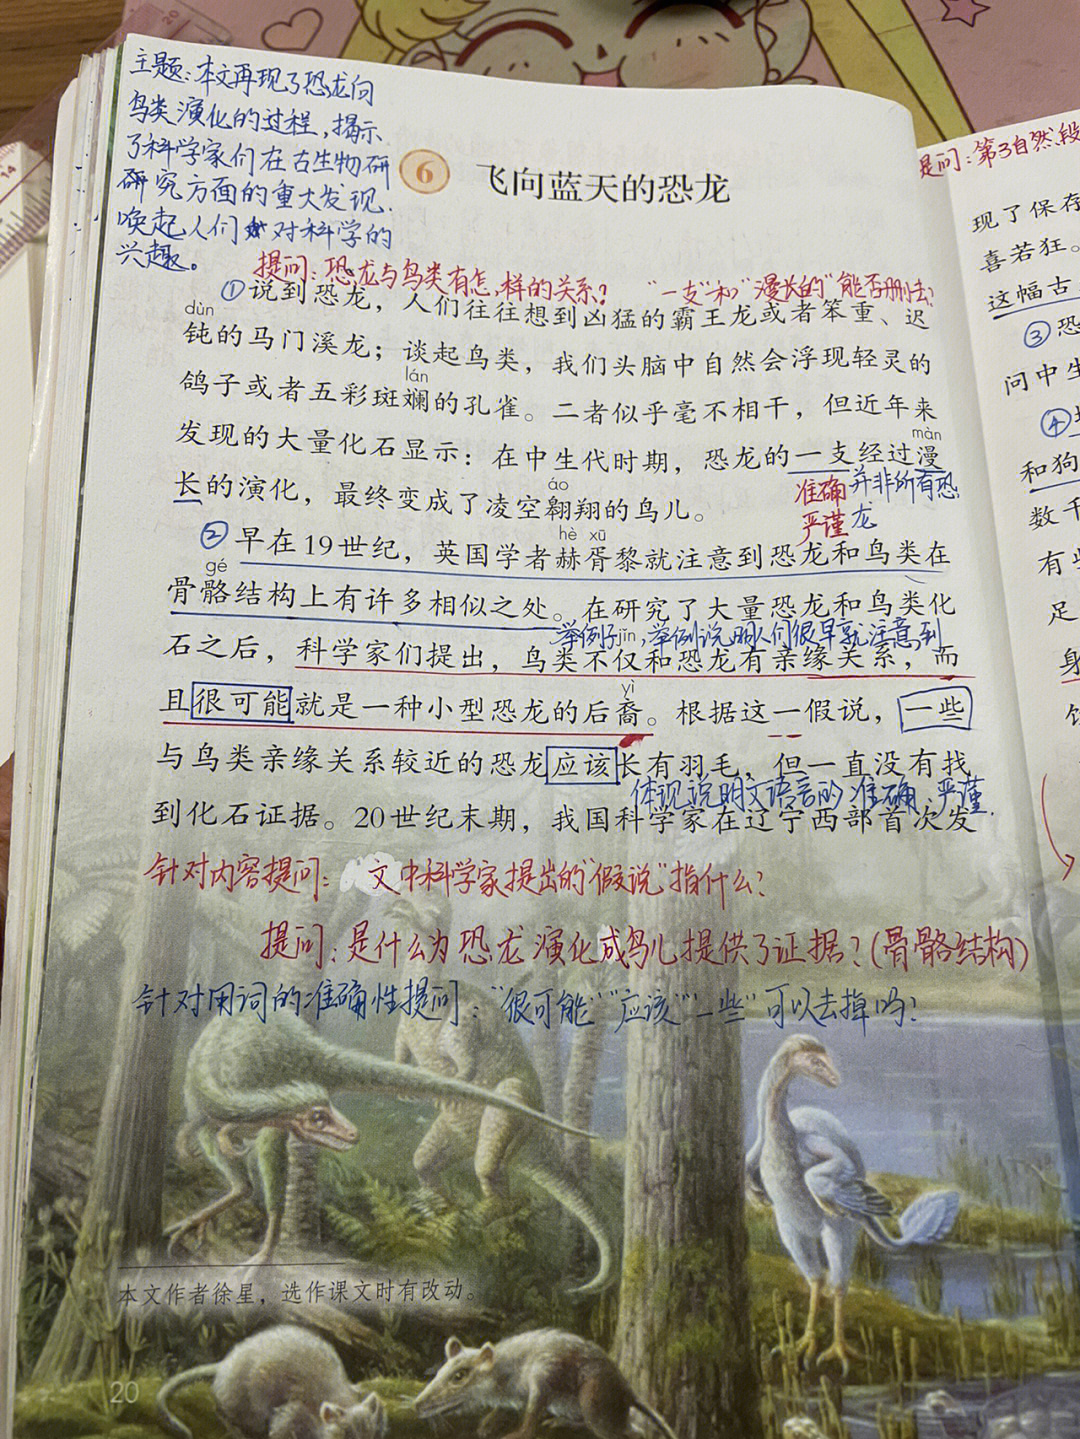 主题:本文再现了恐龙向
鸟类演化的过程,揭示
了科学家们在古生物研
研究方面的重大发现.
唤起人们对科学的
兴趣。
6 飞向蓝天的恐龙
提问:恐龙与鸟类有怎样的关系?
“一支”和“漫长的”能否删去?
①说到恐龙，人们往往想到凶猛的霸王龙或者笨重、迟
dùn
钝的马门溪龙；谈起鸟类，我们头脑中自然会浮现轻灵的
lán
鸽子或者五彩斑斓的孔雀。二者似乎毫不相干，但近年来
发现的大量化石显示：在中生代时期，恐龙的一支经过漫
màn
长的演化，最终变成了凌空翱翔的鸟儿。
áo
准确 并非所有恐
严谨 龙
②早在19世纪，英国学者赫胥黎就注意到恐龙和鸟类在
hè xū
gé
骨骼结构上有许多相似之处。在研究了大量恐龙和鸟类化
举例子jǐn:举例说明人们很早就注意到
石之后，科学家们提出，鸟类不仅和恐龙有亲缘关系，而
yì
且很可能就是一种小型恐龙的后裔。根据这一假说，一些
与鸟类亲缘关系较近的恐龙应该长有羽毛，但一直没有找
体现说明文语言的准确、严谨.
到化石证据。20世纪末期，我国科学家在辽宁西部首次发
针对内容提问:“文中科学家提出的“假说”指什么?
提问:是什么为恐龙演化成鸟儿提供了证据?(骨骼结构)
针对用词的准确性提问:“很可能”“应该”“一些”可以去掉吗?
本文作者徐星，选作课文时有改动。
20
提问:第3自然段
现了保存
喜若狂。
这幅古
③恐
问中生
④
和狗
数千
有些
足
身